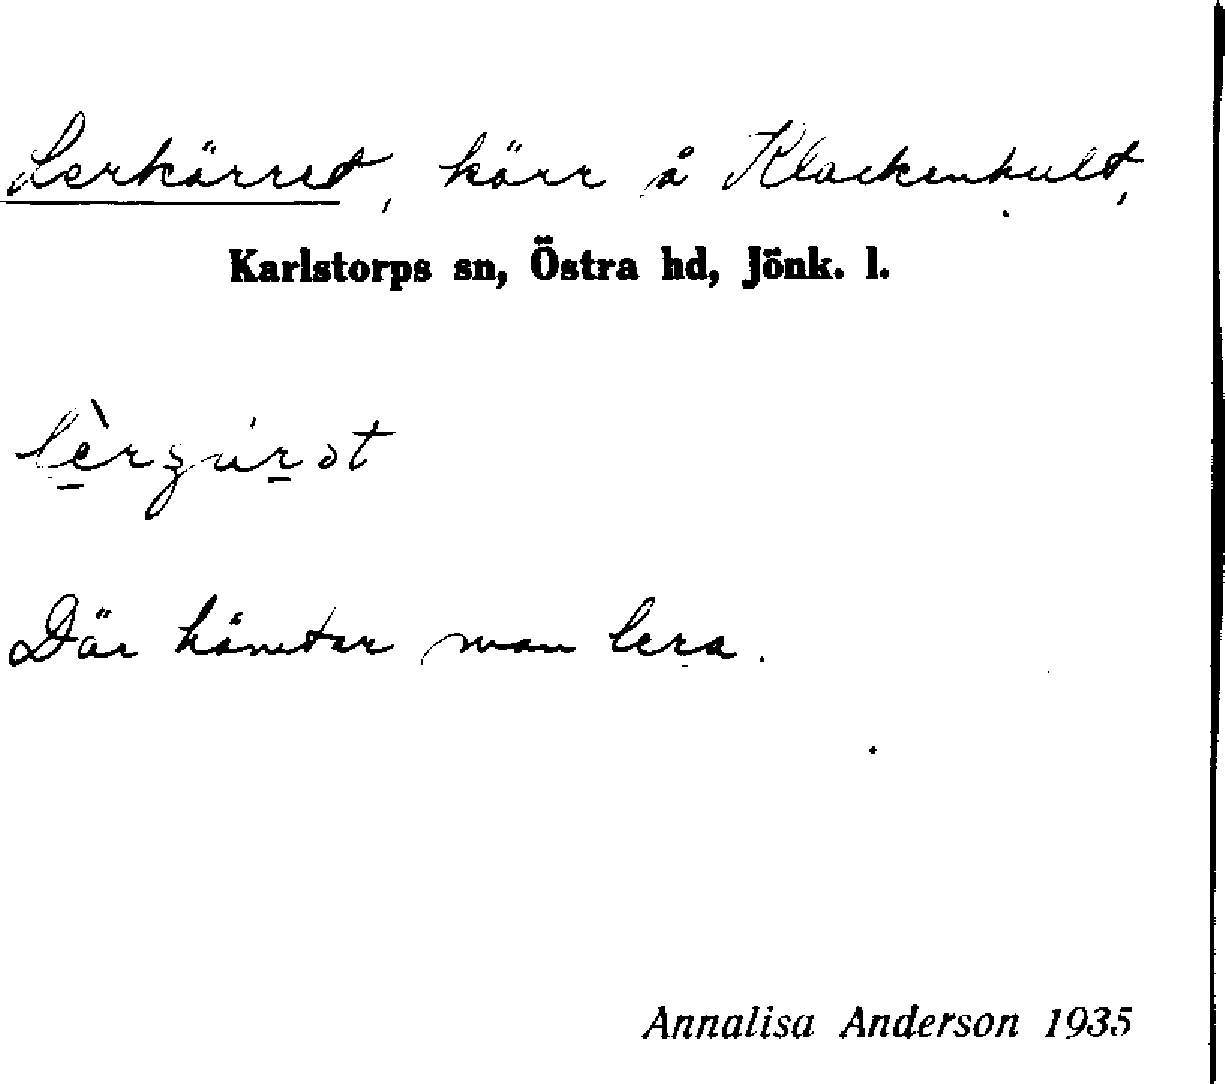 Lerkärret, kärr å Klackenhult,
Karlstorps sn, Östra hd, Jönk. l.
Där hämtar man lera.
Annalisa Anderson 1935